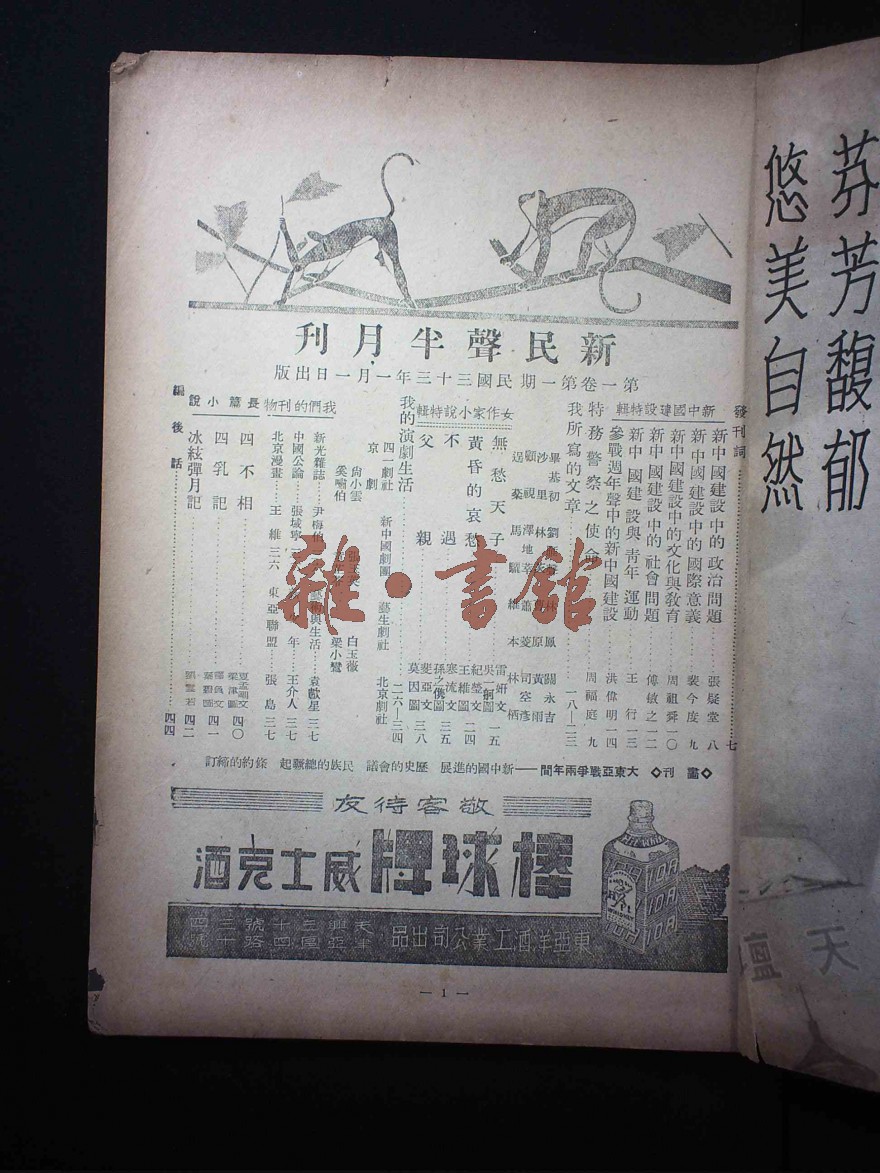 新民聲半月刊
第一卷第一期民國三十三年一月一日出版
發刊詞 七
新中國建設特輯
新中國建設中的政治問題 張疑堂 八
新中國建設中的國際意義 裴今度 九
新中國建設中的文化與敎育 周祖舜 一〇
新中國建設中的社會問題 傅敏之 一二
新中國建設與靑年運動 王行 一三
參戰週年聲中的新中國建設 洪偉明 一四
特務警察之使命 周福庭 九
我所寫的文章 一八—二三
畢基初
關永吉
沙里
林
黃雨
顧視
司空彥
馬驪
林栖
女作家小說特輯
無愁天子 雷妍文 一五
黃昏的哀愁 紀瑩文 二四
王維圖
不遇 寒流文 三五
孫之儁圖
父親 斐亞文 三八
莫因圖
我的演劇生活 二六—三四
四一劇社 新中國劇團 藝生劇社 北京劇社
京劇
尙小雲
白玉薇
奚嘯伯
梁小鸞
我們的刊物
新光雜誌 尹梅伯
藝術與生活 袁獻星 三七
中國公論 張域寧
年 王介人 三七
北京漫畫 王維 三六
東亞聯盟 張島 三七
長篇小說
四不相 四〇
四乳記 四一
冰絃彈月記 四二
編後話 四四
◇畫刊◇ 大東亞戰爭兩年間——新中國的進展 歷史的會議 民族的總蹶起 條約的締訂
敬客待友
棒球牌威士克酒
東亞洋酒工業公司出品
天津興亞三區十四號路二十四號
— 1 —
芬芳馥郁
悠美自然
天壇
雜·書館